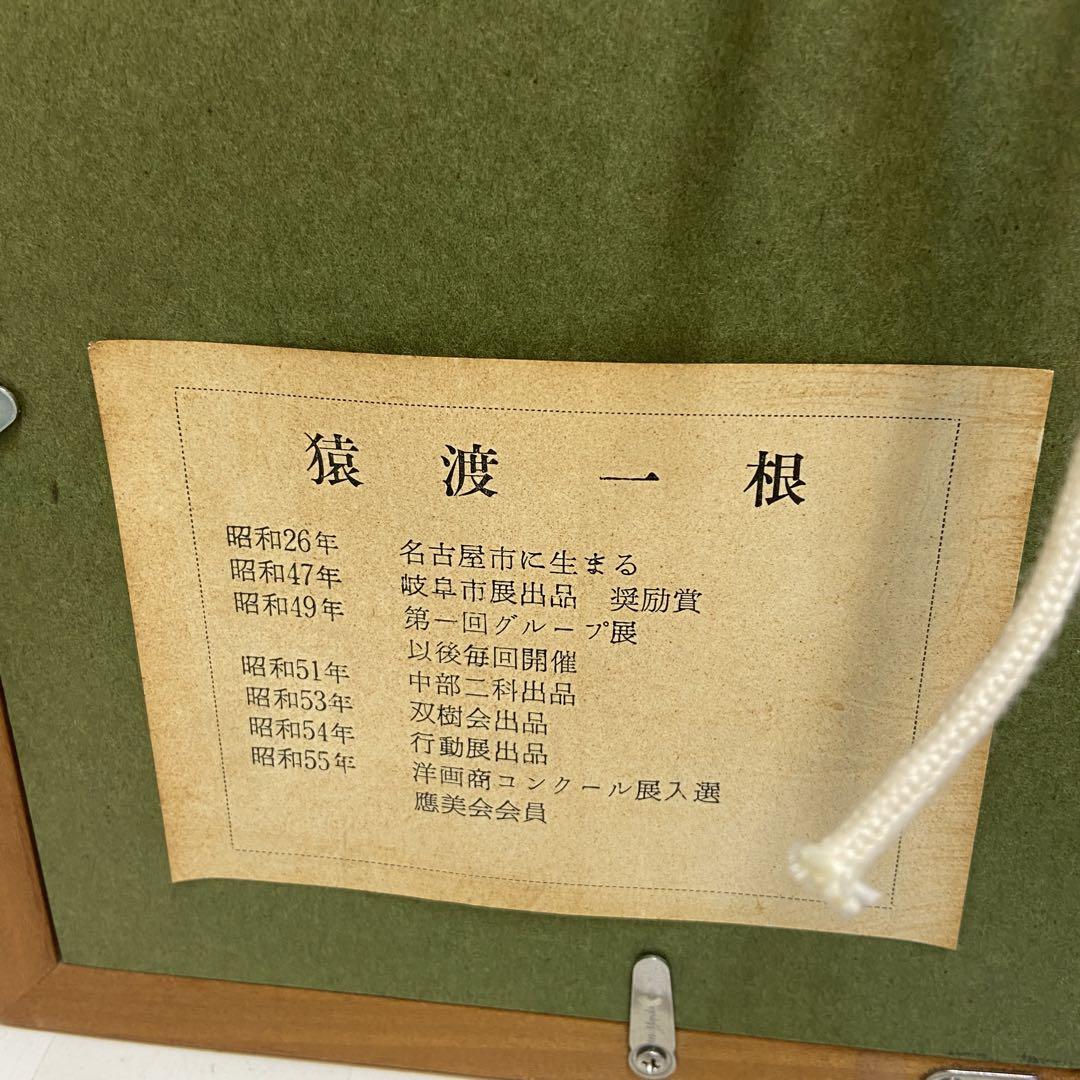 猿渡一根
昭和26年 名古屋市に生まる
昭和47年 岐阜市展出品 奨励賞
昭和49年 第一回グループ展
以後毎回開催
昭和51年 中部二科出品
昭和53年 双樹会出品
昭和54年 行動展出品
昭和55年 洋画商コンクール展入選
應美会会員